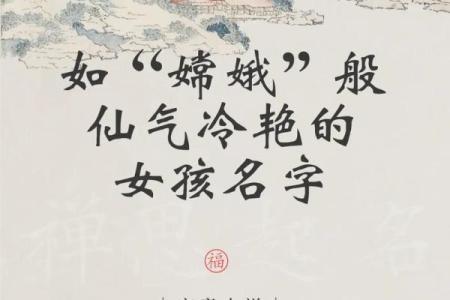 如“嫦娥”般
仙气冷艳的
女孩名字
福